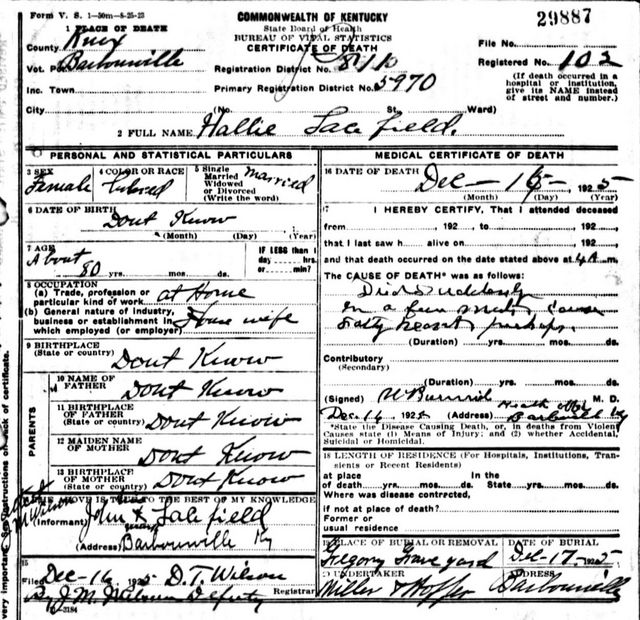 Form V. S. 1-50m-8-25-23
COMMONWEALTH OF KENTUCKY
State Board of Health
BUREAU OF VITAL STATISTICS
CERTIFICATE OF DEATH
29887
1 PLACE OF DEATH
County Knox
Vot. Pct. Barbourville
Inc. Town
City
Registration District No.
Primary Registration District No. 5970
File No.
Registered No. 102
(If death occurred in a hospital or institution, give its NAME instead of street and number.)
(No. St., Ward)
2 FULL NAME Hallie Lacefield.
PERSONAL AND STATISTICAL PARTICULARS
3 SEX Female
4 COLOR OR RACE Colored
5 Single Married Widowed or Divorced (Write the word) Married
6 DATE OF BIRTH Dont Know
(Month) (Day) (Year)
7 AGE About 80 yrs. mos. ds.
IF LESS than 1 day hrs. or min.?
8 OCCUPATION
(a) Trade, profession or particular kind of work at Home
(b) General nature of industry, business or establishment in which employed (or employer) House wife
9 BIRTHPLACE (State or country) Dont Know
PARENTS
10 NAME OF FATHER Dont Know
11 BIRTHPLACE OF FATHER (State or country) Dont Know
12 MAIDEN NAME OF MOTHER Dont Know
13 BIRTHPLACE OF MOTHER (State or country) Dont Know
THE ABOVE IS TRUE TO THE BEST OF MY KNOWLEDGE
(Informant) John his X mark Lacefield
(Address) Barbourville Ky
M Wilson
15
Filed Dec-16 1925 D.T. Wilson
Registrar
By J.M. Deputy
11-3184
MEDICAL CERTIFICATE OF DEATH
16 DATE OF DEATH Dec - 16 - 1925
(Month) (Day) (Year)
17 I HEREBY CERTIFY, That I attended deceased
from , 192 to , 192 ,
that I last saw h alive on , 192 ,
and that death occurred on the date stated above at 4 A m.
The CAUSE OF DEATH* was as follows:
Died Suddenly
in a few minutes cause
fatty heart perhaps.
(Duration) yrs. mos. ds.
Contributory
(Secondary)
(Duration) yrs. mos. ds.
(Signed) M. D.
Health Offr
Dec 16 1925 (Address) Barbourville Ky
*State the Disease Causing Death, or, in deaths from Violent Causes state (1) Means of Injury; and (2) whether Accidental, Suicidal or Homicidal.
18 LENGTH OF RESIDENCE (For Hospitals, Institutions, Transients or Recent Residents)
at place of death yrs. mos. ds.
In the State yrs. mos. ds.
Where was disease contrected,
if not at place of death?
Former or usual residence
19 PLACE OF BURIAL OR REMOVAL Gregory Grave yard
DATE OF BURIAL Dec-17-1925
20 UNDERTAKER Miller & Hoffer
ADDRESS Barbourville
very important. See instructions on back of certificate.